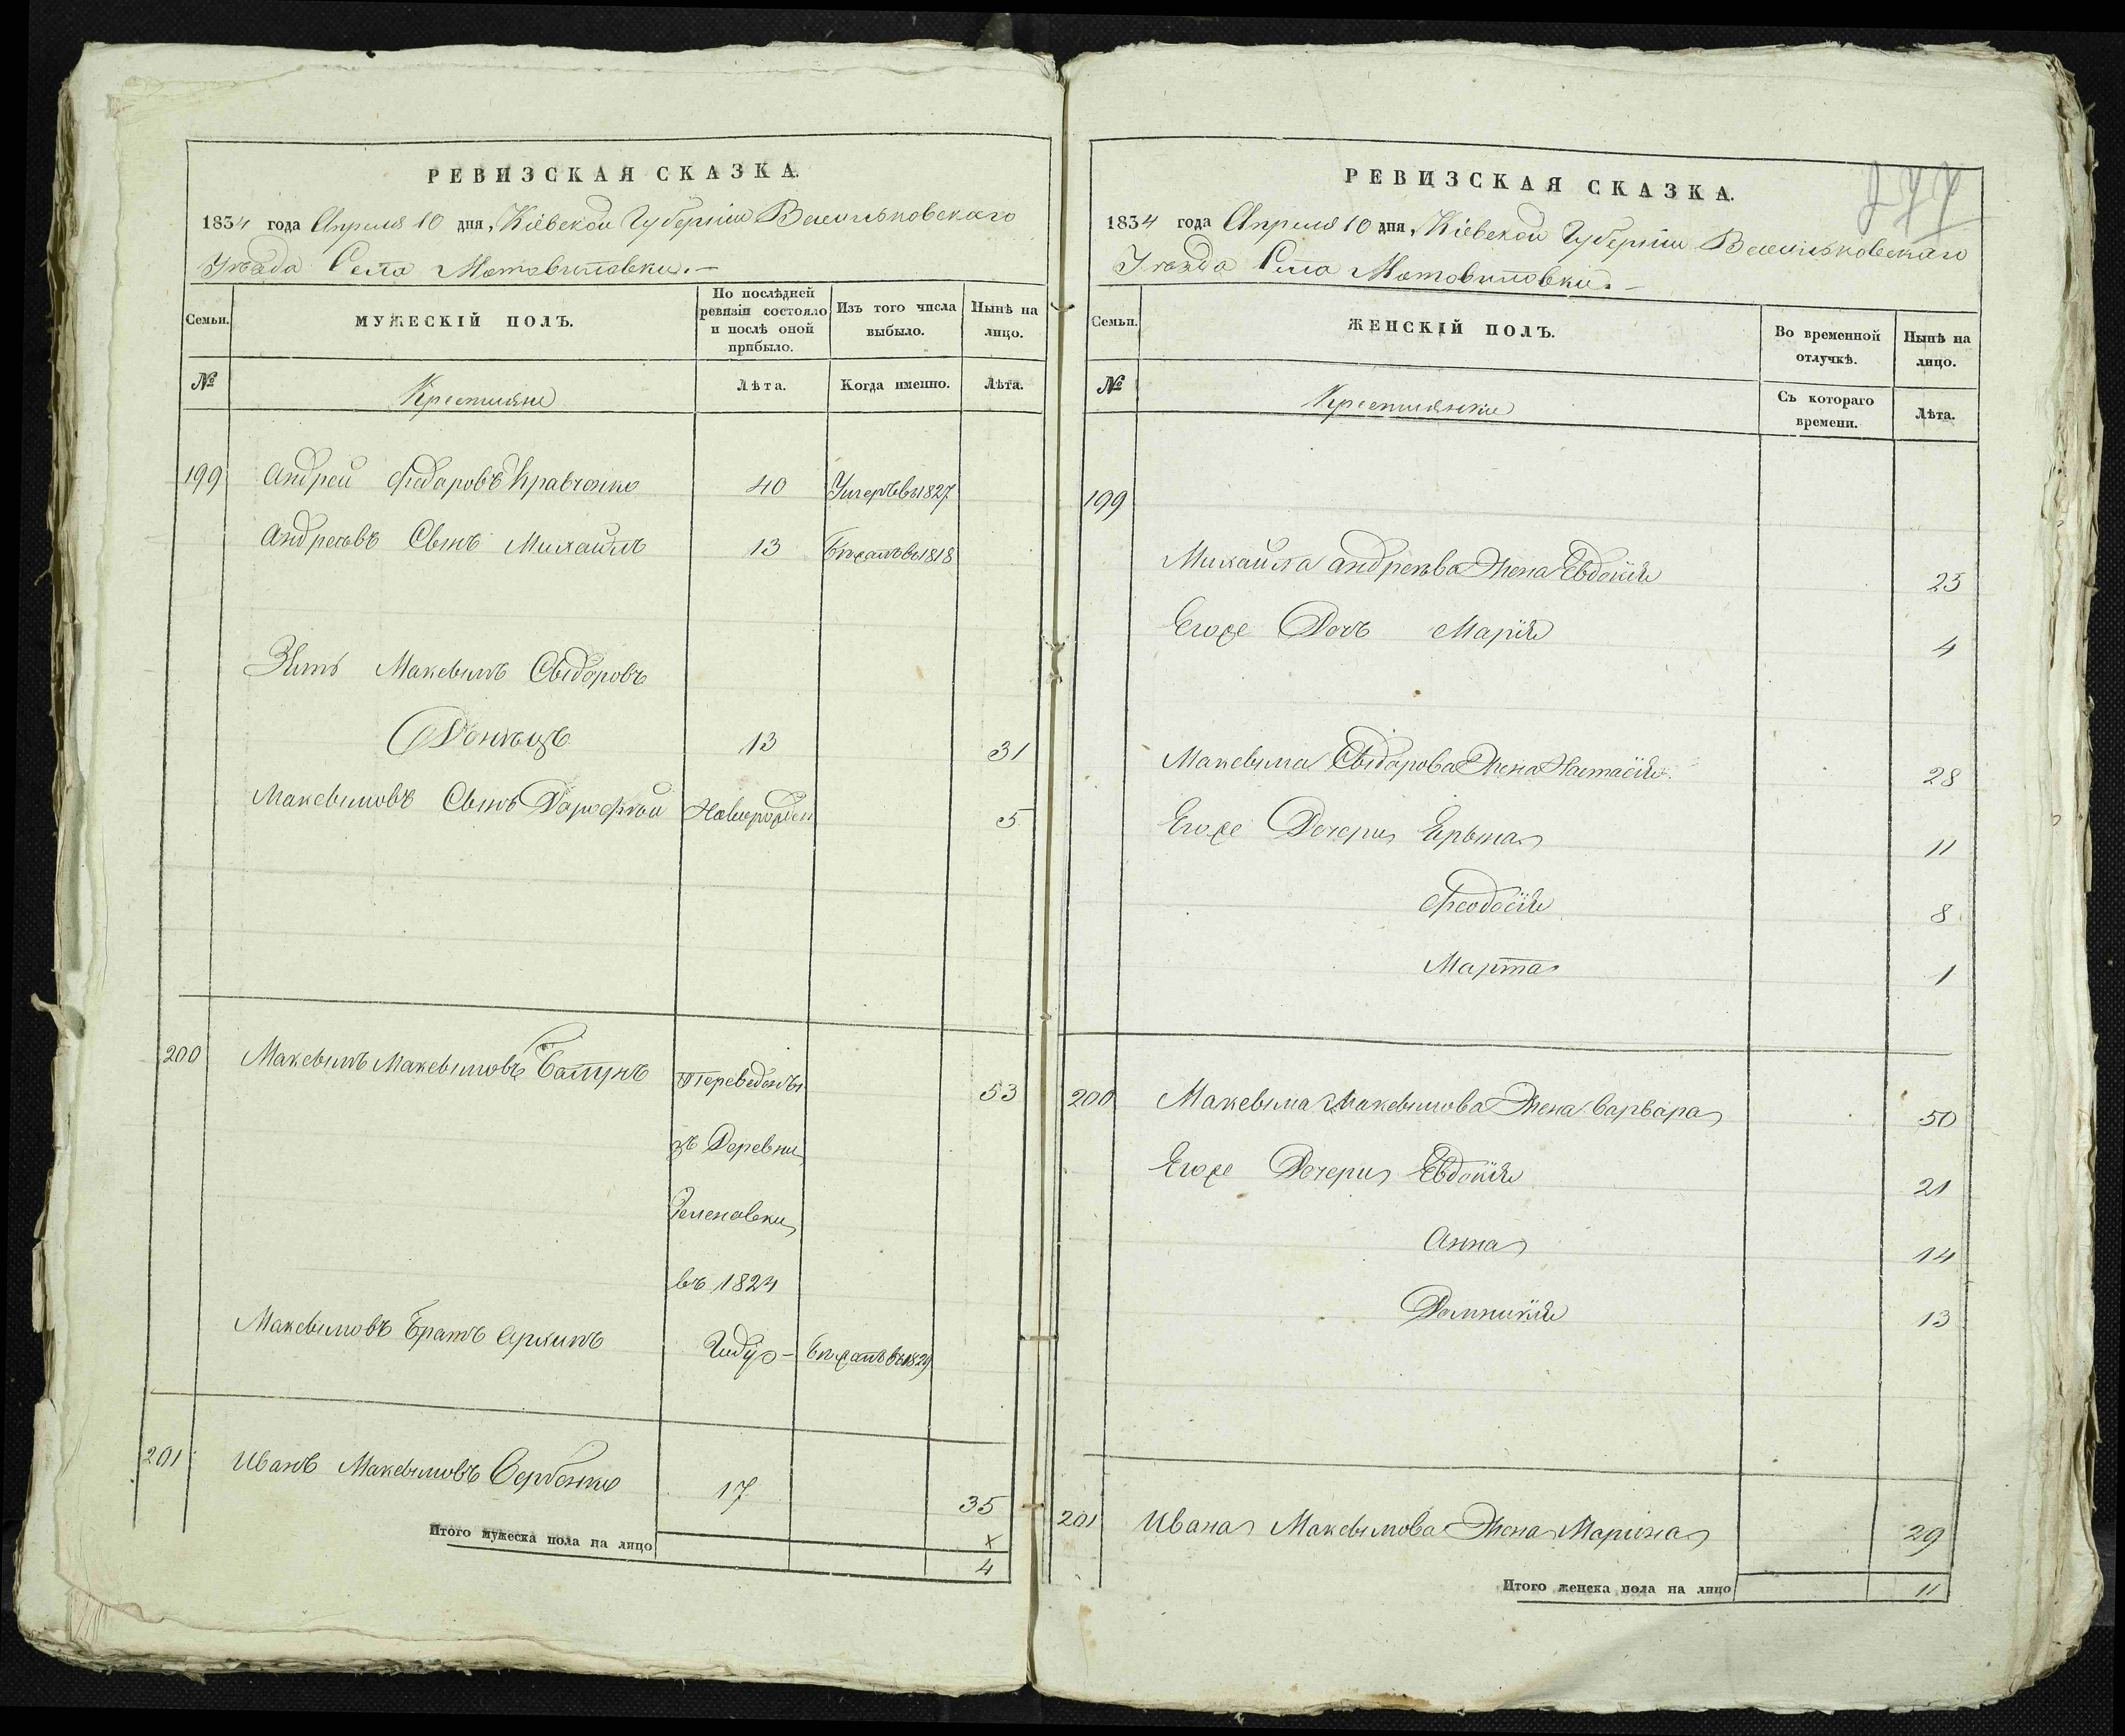 РЕВИЗСКАЯ СКАЗКА.
1834 года Апреля 10 дня, Кіевской Губерніи Васильковскаго
Уѣзда Села Мотовиловки.
Семьи.
МУЖЕСКІЙ ПОЛЪ.
По послѣдней ревизіи состояло и послѣ оной прибыло.
Изъ того числа выбыло.
Нынѣ на лицо.
№
Крестьяне
Лѣта.
Когда именно.
Лѣта.
199 Андрей Федоровъ Кравченко 40 Умеръ въ 1827
Андреевъ Сынъ Михайлъ 13 Бѣжалъ въ 1818
Зять Максымъ Сыдоровъ
Донѣцъ 13 31
Максымовъ Сынъ Дорофей Новорожден 5
200 Максымъ Максымовъ Бапунъ Переведенъ 53
зъ Деревни
Зеленовки
въ 1824
Максымовъ Братъ Архипъ бѣжалъ въ 1829
201 Иванъ Максымовъ Сербенко 17 35
Итого мужеска пола на лицо
х
4
РЕВИЗСКАЯ СКАЗКА.
1834 года Апреля 10 дня, Кіевской Губерніи Васильковскаго
Уѣзда Села Мотовиловки.
Семьи.
ЖЕНСКІЙ ПОЛЪ.
Во временной отлучкѣ.
Нынѣ на лицо.
№
Крестьянки
Съ котораго времени.
Лѣта.
199
Михайла Андреева Жена Евдокія 23
Егоже Дочъ Марія 4
Максыма Сыдорова Жена Настасія 28
Егоже Дочери Ерына 11
Феодосія 8
Марта 1
200 Максыма Максымова Жена Варвара 50
Егоже Дочери Евдокія 21
Анна 14
Домникія 13
201 Ивана Максымова Жена Марина 29
Итого женска пола на лицо 11